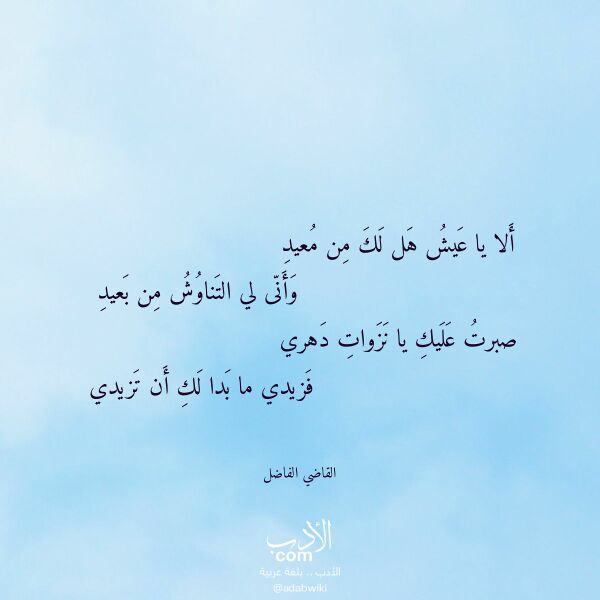 أَلا يا عَيشُ هَل لَكَ مِن مُعيدِ
وَأَنّى لي التَناوُشُ مِن بَعيدِ
صبرتُ عَلَيكِ يا نَزَواتِ دَهري
فَزيدي ما بَدا لَكِ أَن تَزيدي
القاضي الفاضل
الأدب
com
الأدب .. بلغة عربية
@adabwiki